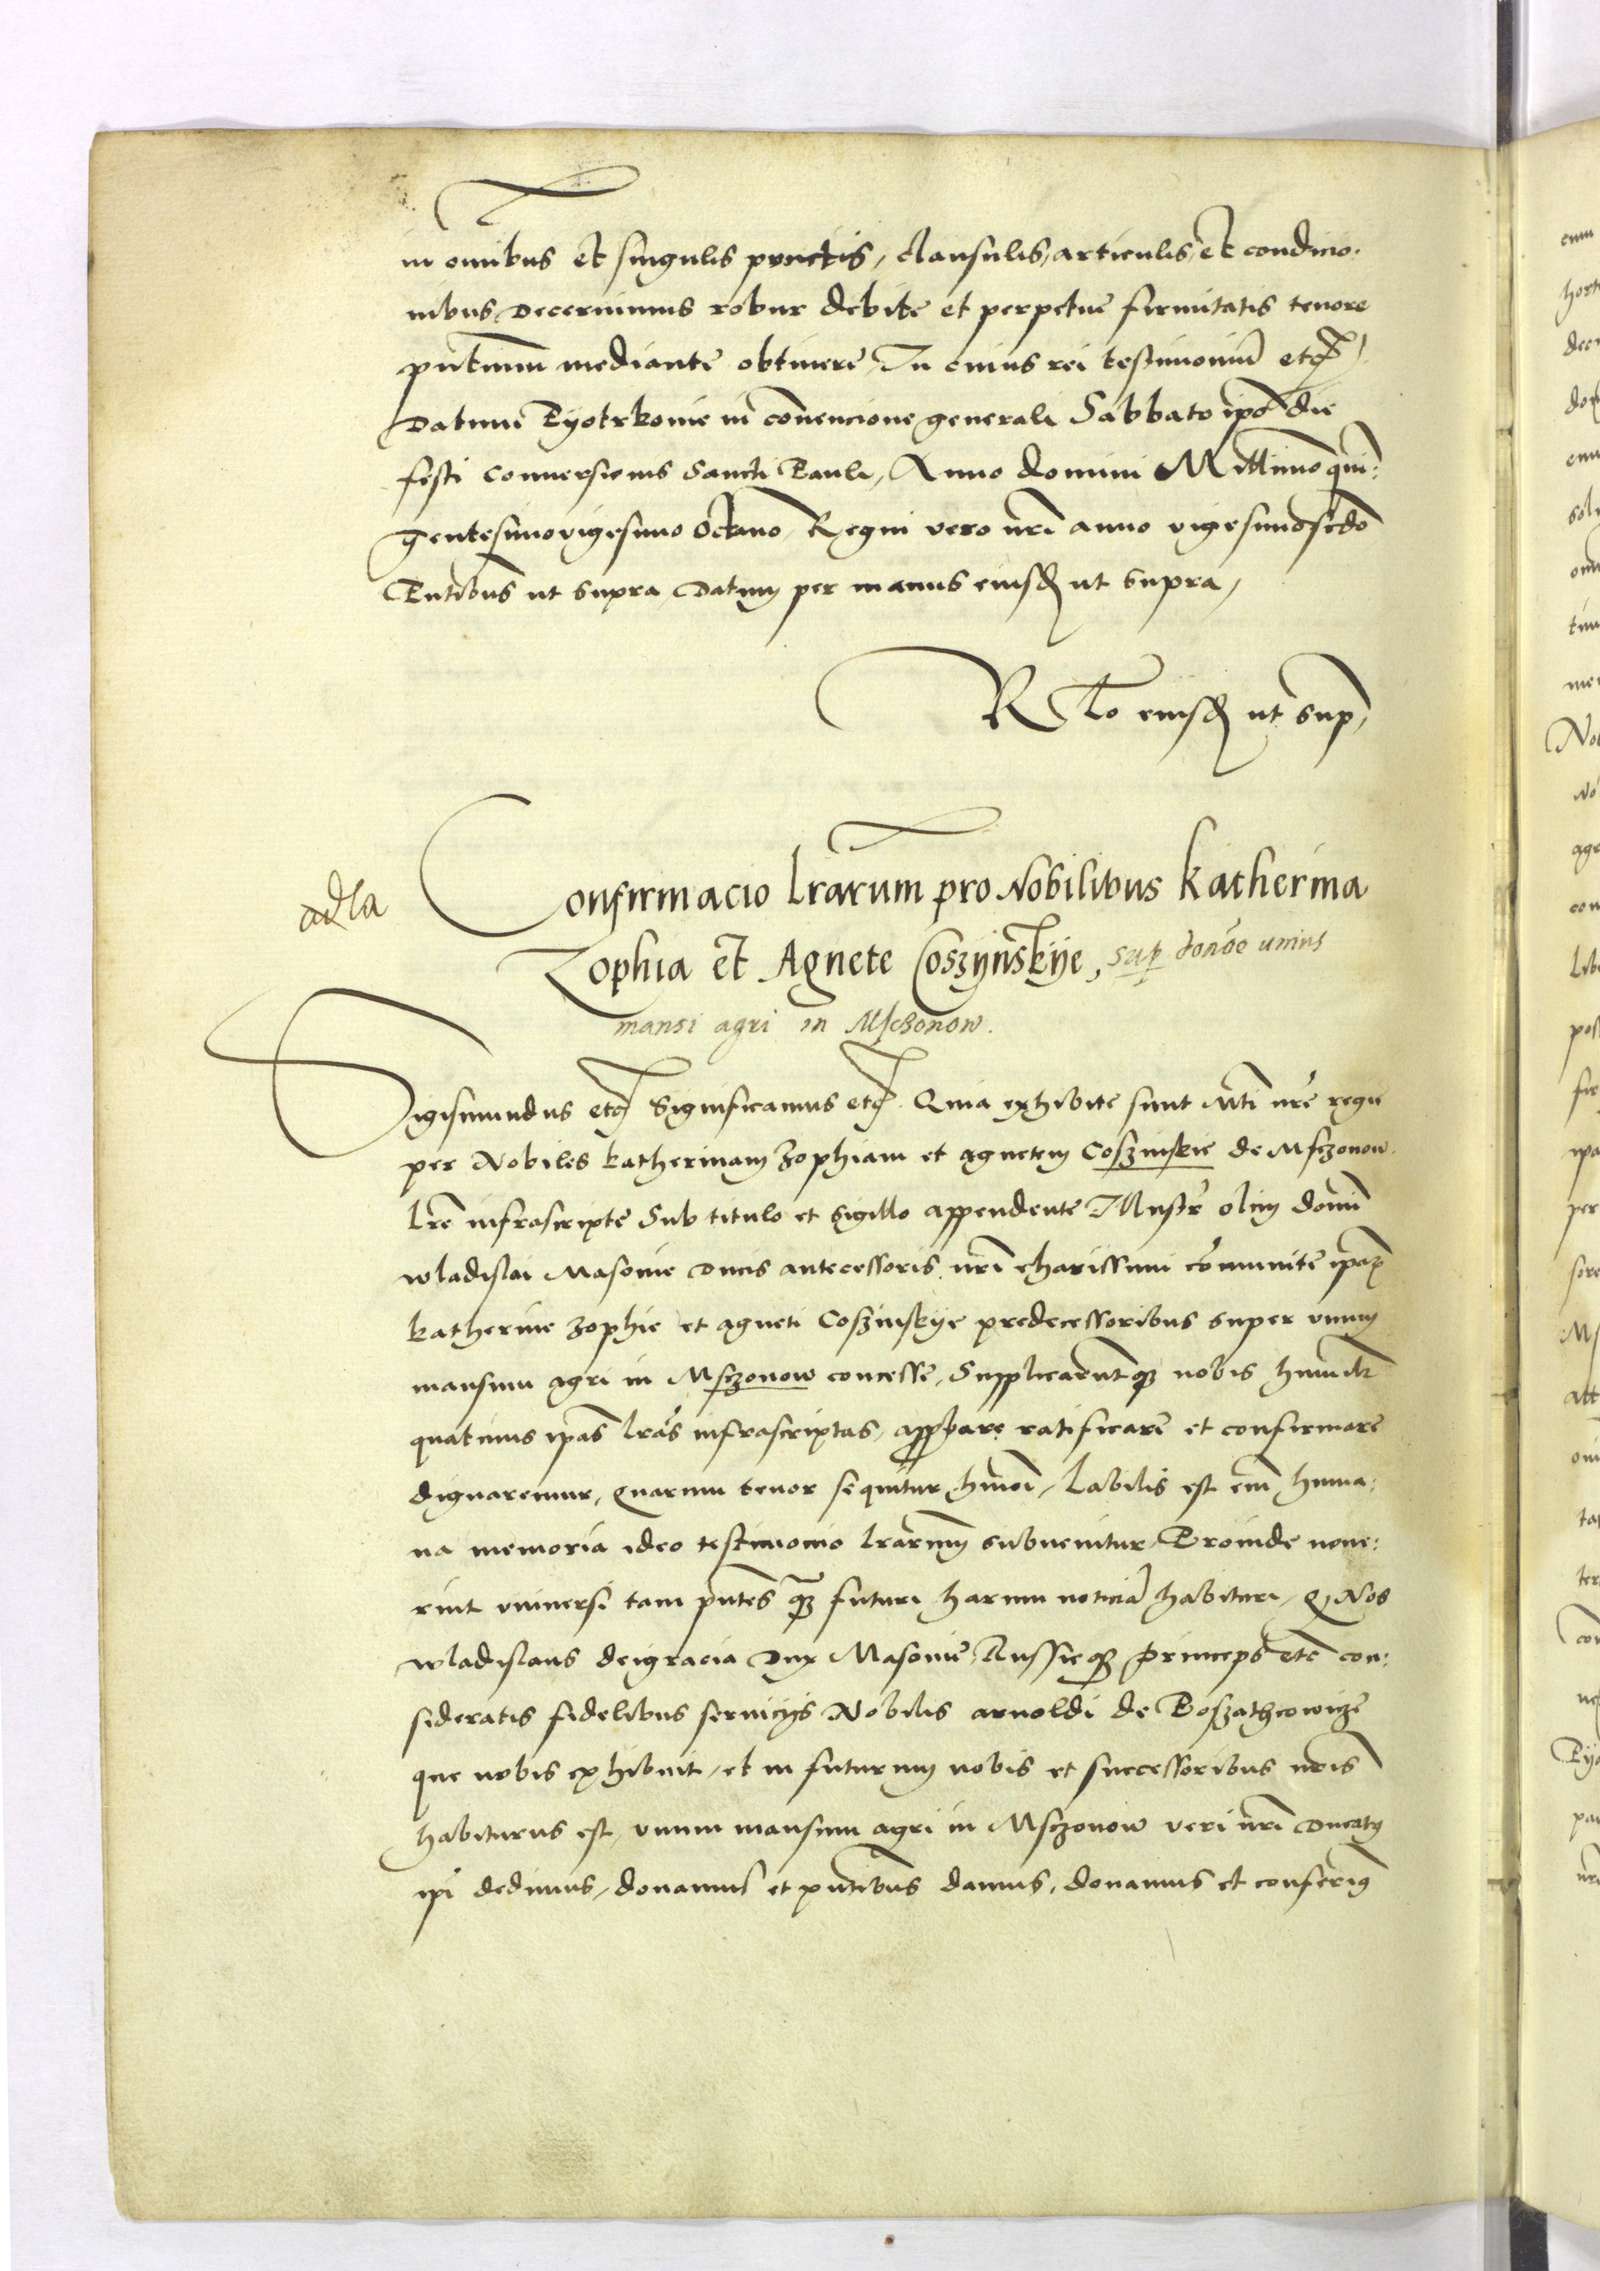 in omibus et singulis punctis, clausulis, articulis, et condicio.
nibus decernimus robur debite et perpetue firmitatis tenore
pntium mediante obtinere, In cuius rei testimoniu etc,
Datum Pyotrkouie in conuencione generali Sabbato ipo die
festi conuersionis Sancti Pauli, Anno domini Millimo quin:
gentesimo vigesimo Octauo, Regni vero nri anno vigesimo scdo
Pntibus ut supra, Datum per manus eiusd ut supra,
R To eiusd ut sup,
adla
Confirmacio lrarum pro Nobilibus Katherina
Zophia et Agnete Coszynskye, sup donoe unius
mansi agri in Msczonow.
Sigismundus etc Significamus etc. Quia exhibite sunt Mti nre regie
per Nobiles Katherinam Zophiam et Agnetem Coszinskie de Msczonow.
lre infrascripte Sub titulo et Sigillo appendente Illustr olim domi
wladislai Masouie Ducis antecessoris nri charissimi comunite ipar
Katherine Zophie et Agneti Coszinskye predecessoribus super vnum
mansum agri in Msczonow concesse, Supplicaruntq nobis humilr
quatinus ipas lras infrascriptas, approbare ratificare et confirmare
dignaremur, Quarum tenor sequitur hmoi, Labilis est em huma:
na memoria ideo testimonio lrarum subuenitur, Proinde noue:
rint vniuersi tam pntes q futuri harum noticia habituri, Q Nos
wladislaus deigracia Dux Masouie, Russieq princeps etc con:
sideratis fidelibus seruicys Nobilis Arnoldi de Boszathcowicze
que nobis exhibuit, et in futurum nobis et successoribus nris
habiturus est, vnum mansum agri in Msczonow veri nri Ducatus
ipi dedimus, donamus et pntibus damus, donamus et conferim